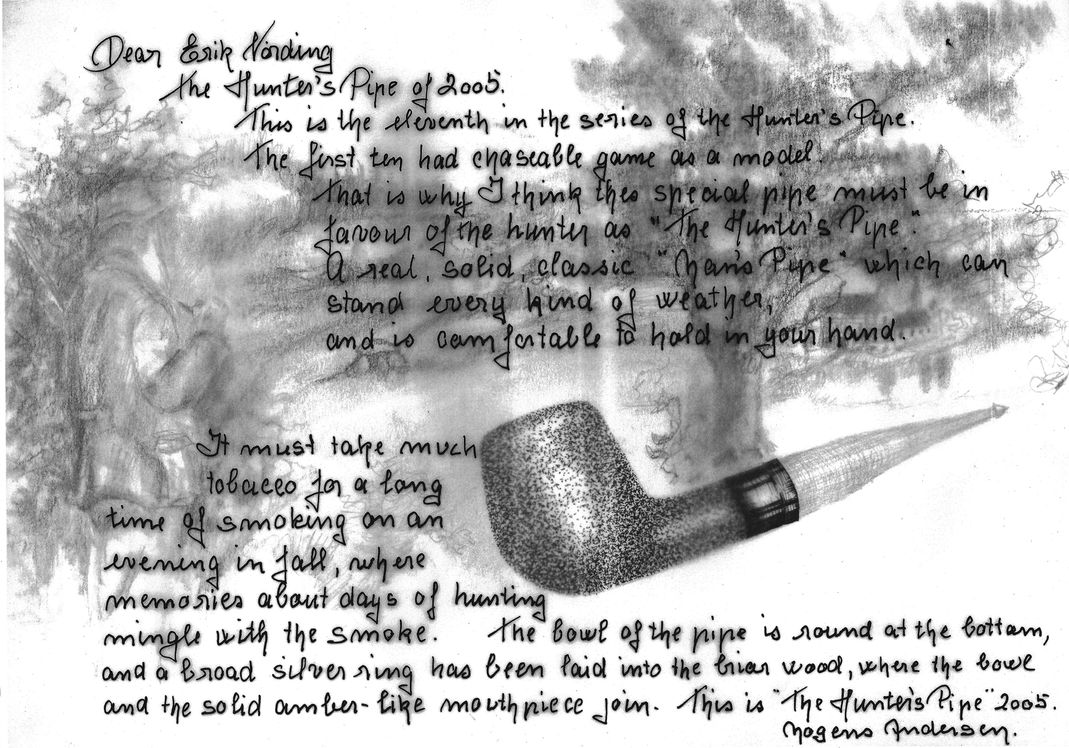 Dear Erik Nørding
The Hunter's Pipe of 2005.
This is the eleventh in the series of the Hunter's Pipe.
The first ten had chaseable game as a model.
That is why I think thes special pipe must be in
favour of the hunter as "The Hunter's Pipe".
A real, solid, classic "Man's Pipe" which can
stand every kind of weather,
and is comfortable to hold in your hand.
It must take much
tobacco for a long
time of smoking on an
evening in fall, where
memories about days of hunting
mingle with the smoke. The bowl of the pipe is round at the bottom,
and a broad silver ring has been laid into the briar wood, where the bowl
and the solid amber-like mouthpiece join. This is "The Hunter's Pipe" 2005.
Mogens Andersen.